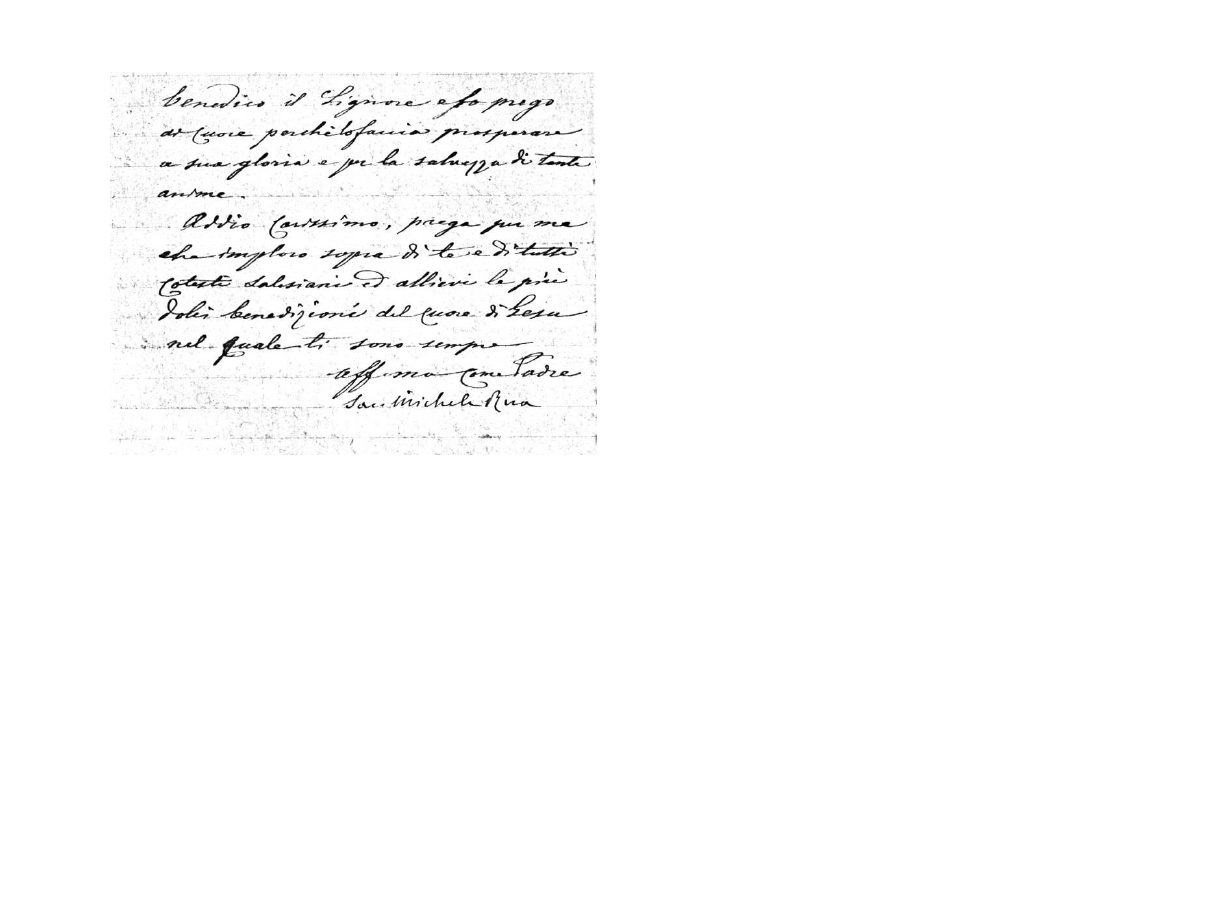 benedico il Signore e lo prego
di cuore perchè lo faccia prosperare
a sua gloria e per la salvezza di tante
anime.
Addio Carissimo, prega per me
che imploro sopra di te e di tutti
cotesti salesiani ed allievi le più
dolci benedizioni del Cuore di Gesu
nel quale ti sono sempre
aff.mo Come Padre
Sac. Michele Rua